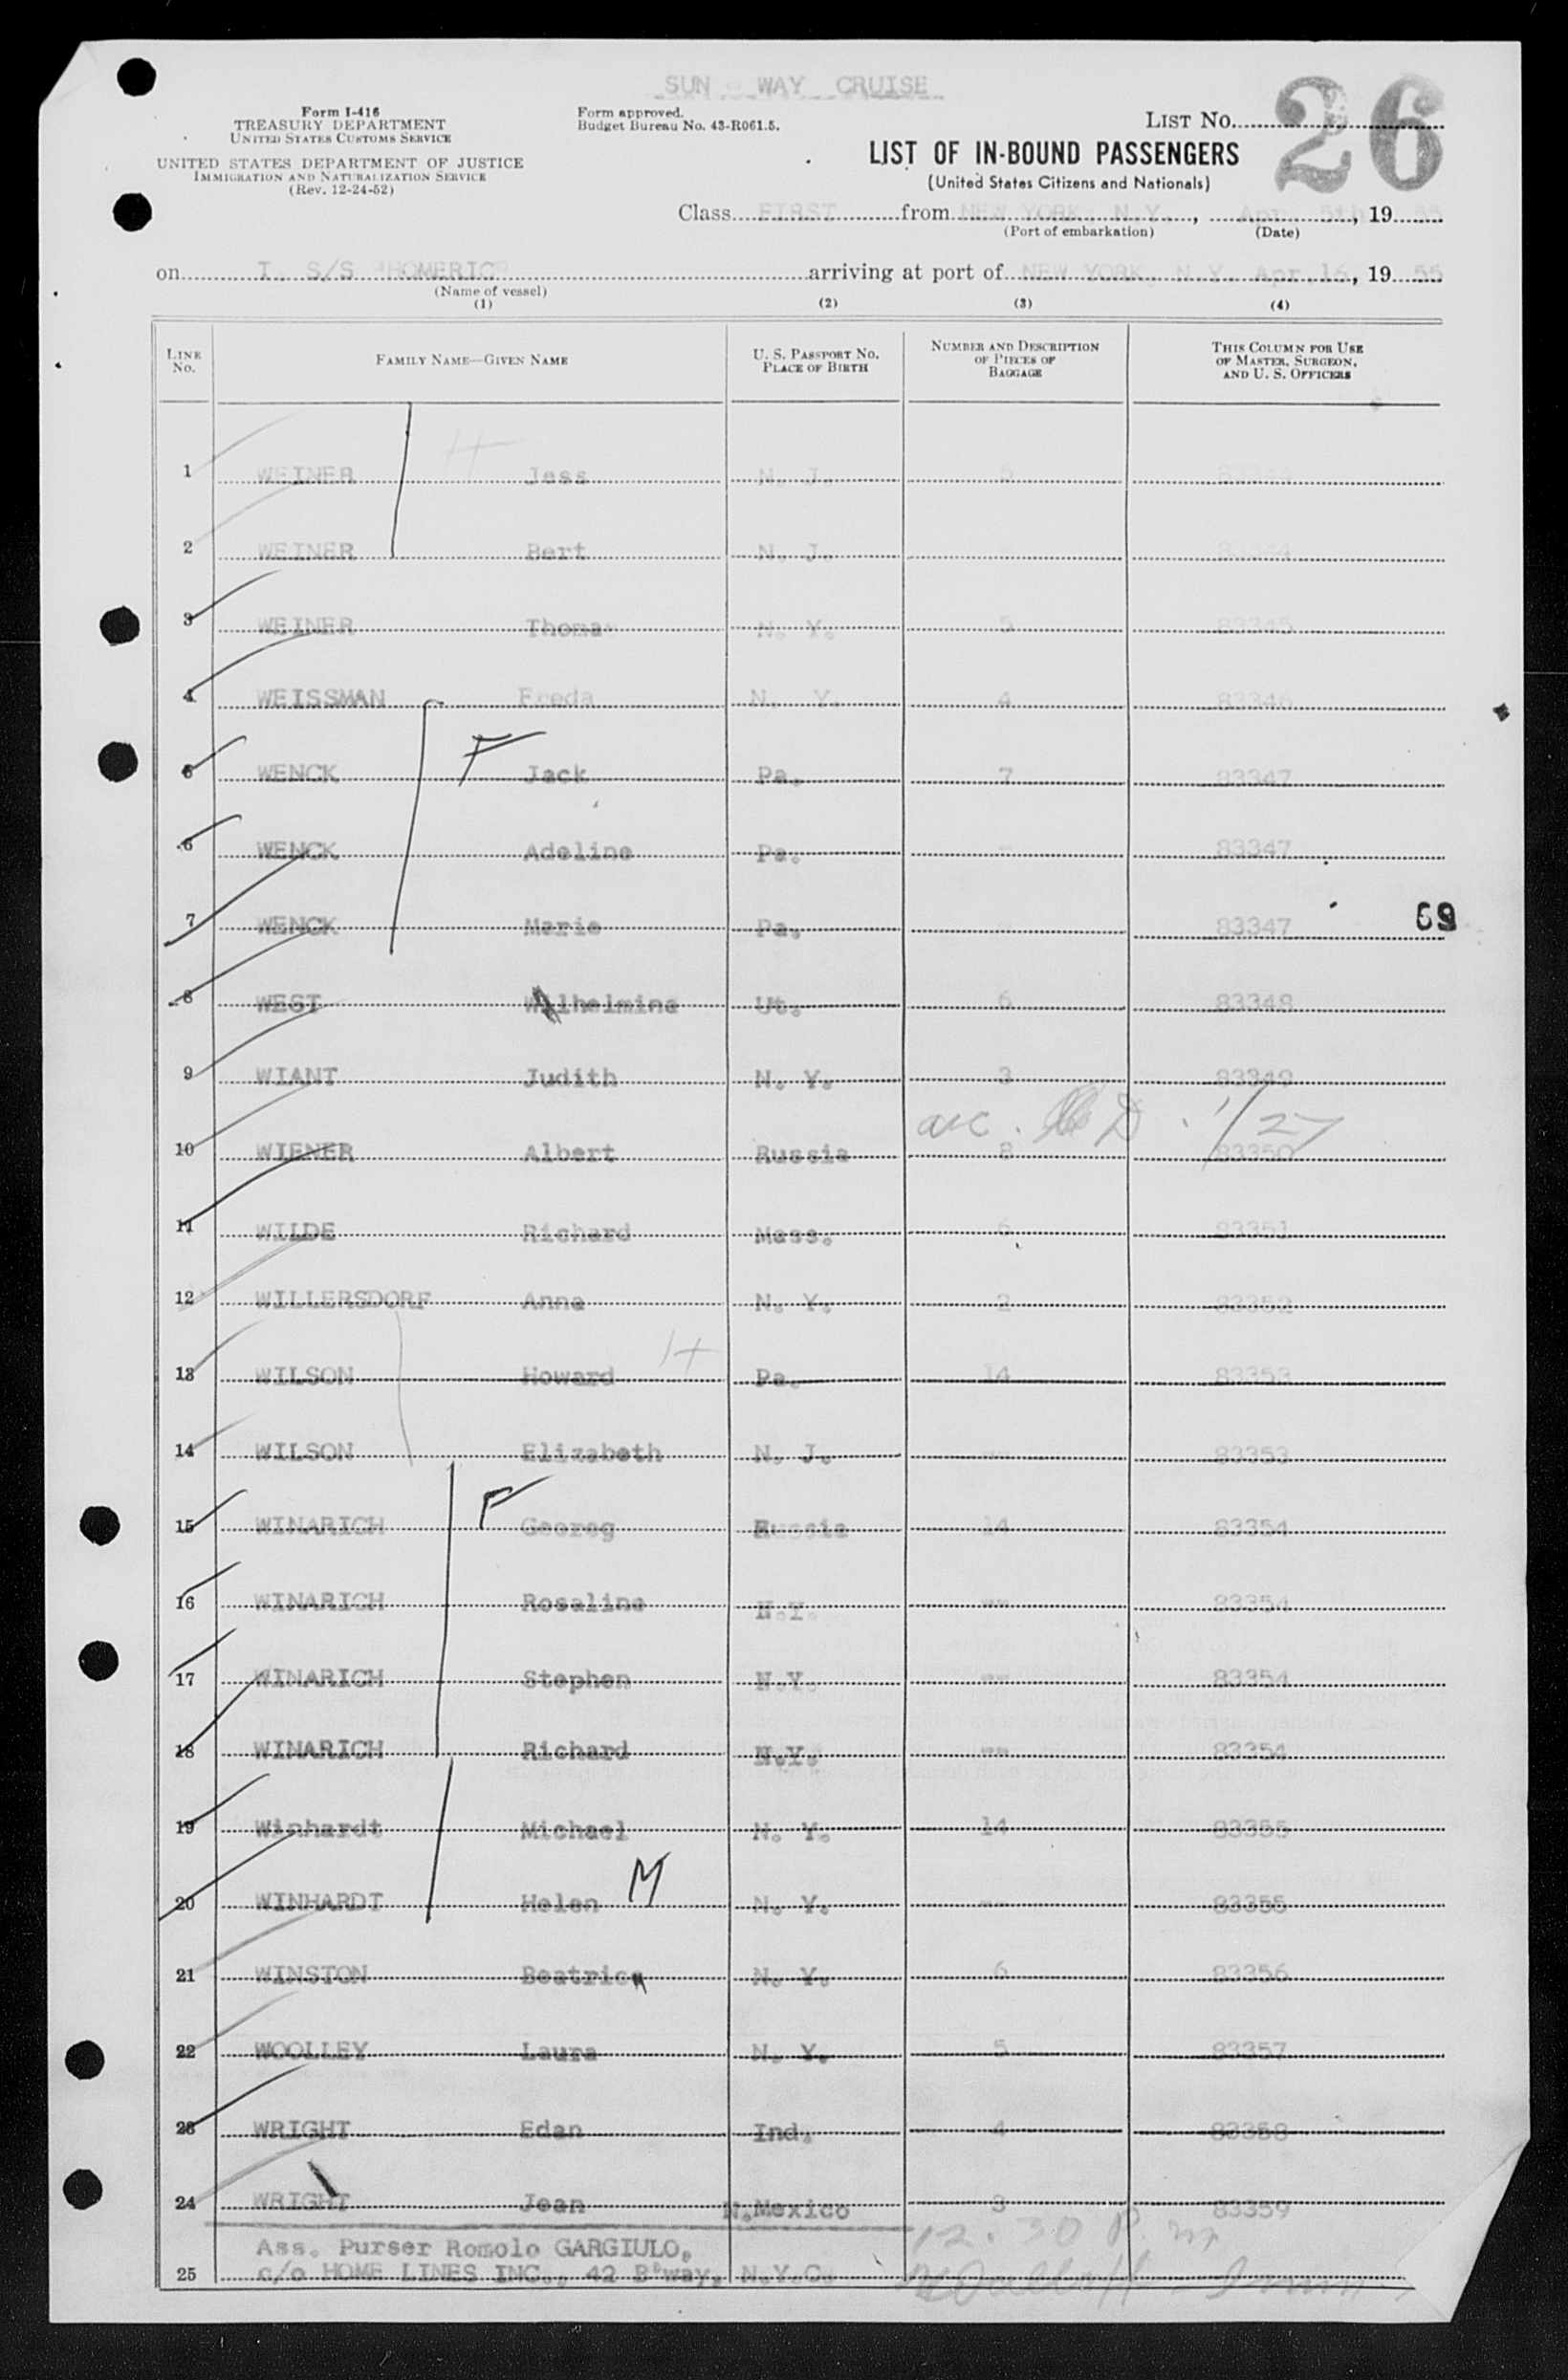 SUN WAY CRUISE
Form I-416
TREASURY DEPARTMENT
UNITED STATES CUSTOMS SERVICE
UNITED STATES DEPARTMENT OF JUSTICE
IMMIGRATION AND NATURALIZATION SERVICE
(Rev. 12-24-52)
Form approved.
Budget Bureau No. 43-R061.5.
LIST No. 26
LIST OF IN-BOUND PASSENGERS
(United States Citizens and Nationals)
Class FIRST from NEW YORK, N.Y., Apr. 5th, 19 55
(Port of embarkation) (Date)
on T. S/S "HOMERIC" arriving at port of NEW YORK, N.Y. Apr. 16, 19 55
(Name of vessel)
(1) (2) (3) (4)
LINE No. FAMILY NAME—GIVEN NAME U. S. PASSPORT No. PLACE OF BIRTH NUMBER AND DESCRIPTION OF PIECES OF BAGGAGE THIS COLUMN FOR USE OF MASTER, SURGEON, AND U. S. OFFICERS
H
1 WEINER Jess N. J. 5
2 WEINER Bert N. J.
3 WEINER Thomas N. Y. 5 83345
4 WEISSMAN Freda N. Y. 4 83346
F
5 WENCK Jack Pa. 7 83347
6 WENCK Adeline Pa. - 83347
7 WENCK Marie Pa. 83347 69
8 WEST Wilhelmina Ut. 6 83348
9 WIANT Judith N. Y. 3 83349
1/27
10 WIENER Albert Russia 8 83350
11 WILDE Richard Mass. 6 83351
12 WILLERSDORF Anna N. Y. 2 83352
13 WILSON Howard H Pa. 14 83353
14 WILSON Elizabeth N. J. -- 83353
F
15 WINARICH Georeg Russia 14 83354
16 WINARICH Rosaline N.Y. -- 83354
17 WINARICH Stephen N.Y. -- 83354
18 WINARICH Richard N.Y. -- 83354
19 Winhardt Michael N. Y. 14 83355
20 WINHARDT Helen M N. Y. -- 83355
21 WINSTON Beatrice N. Y. 6 83356
22 WOOLLEY Laura N. Y. 5 83357
23 WRIGHT Edan Ind. 4 83358
24 WRIGHT Jean N.Mexico 3 83359
12.30 P.m
Ass. Purser Romolo GARGIULO,
25 c/o HOME LINES INC., 42 B'way, N.Y.C.